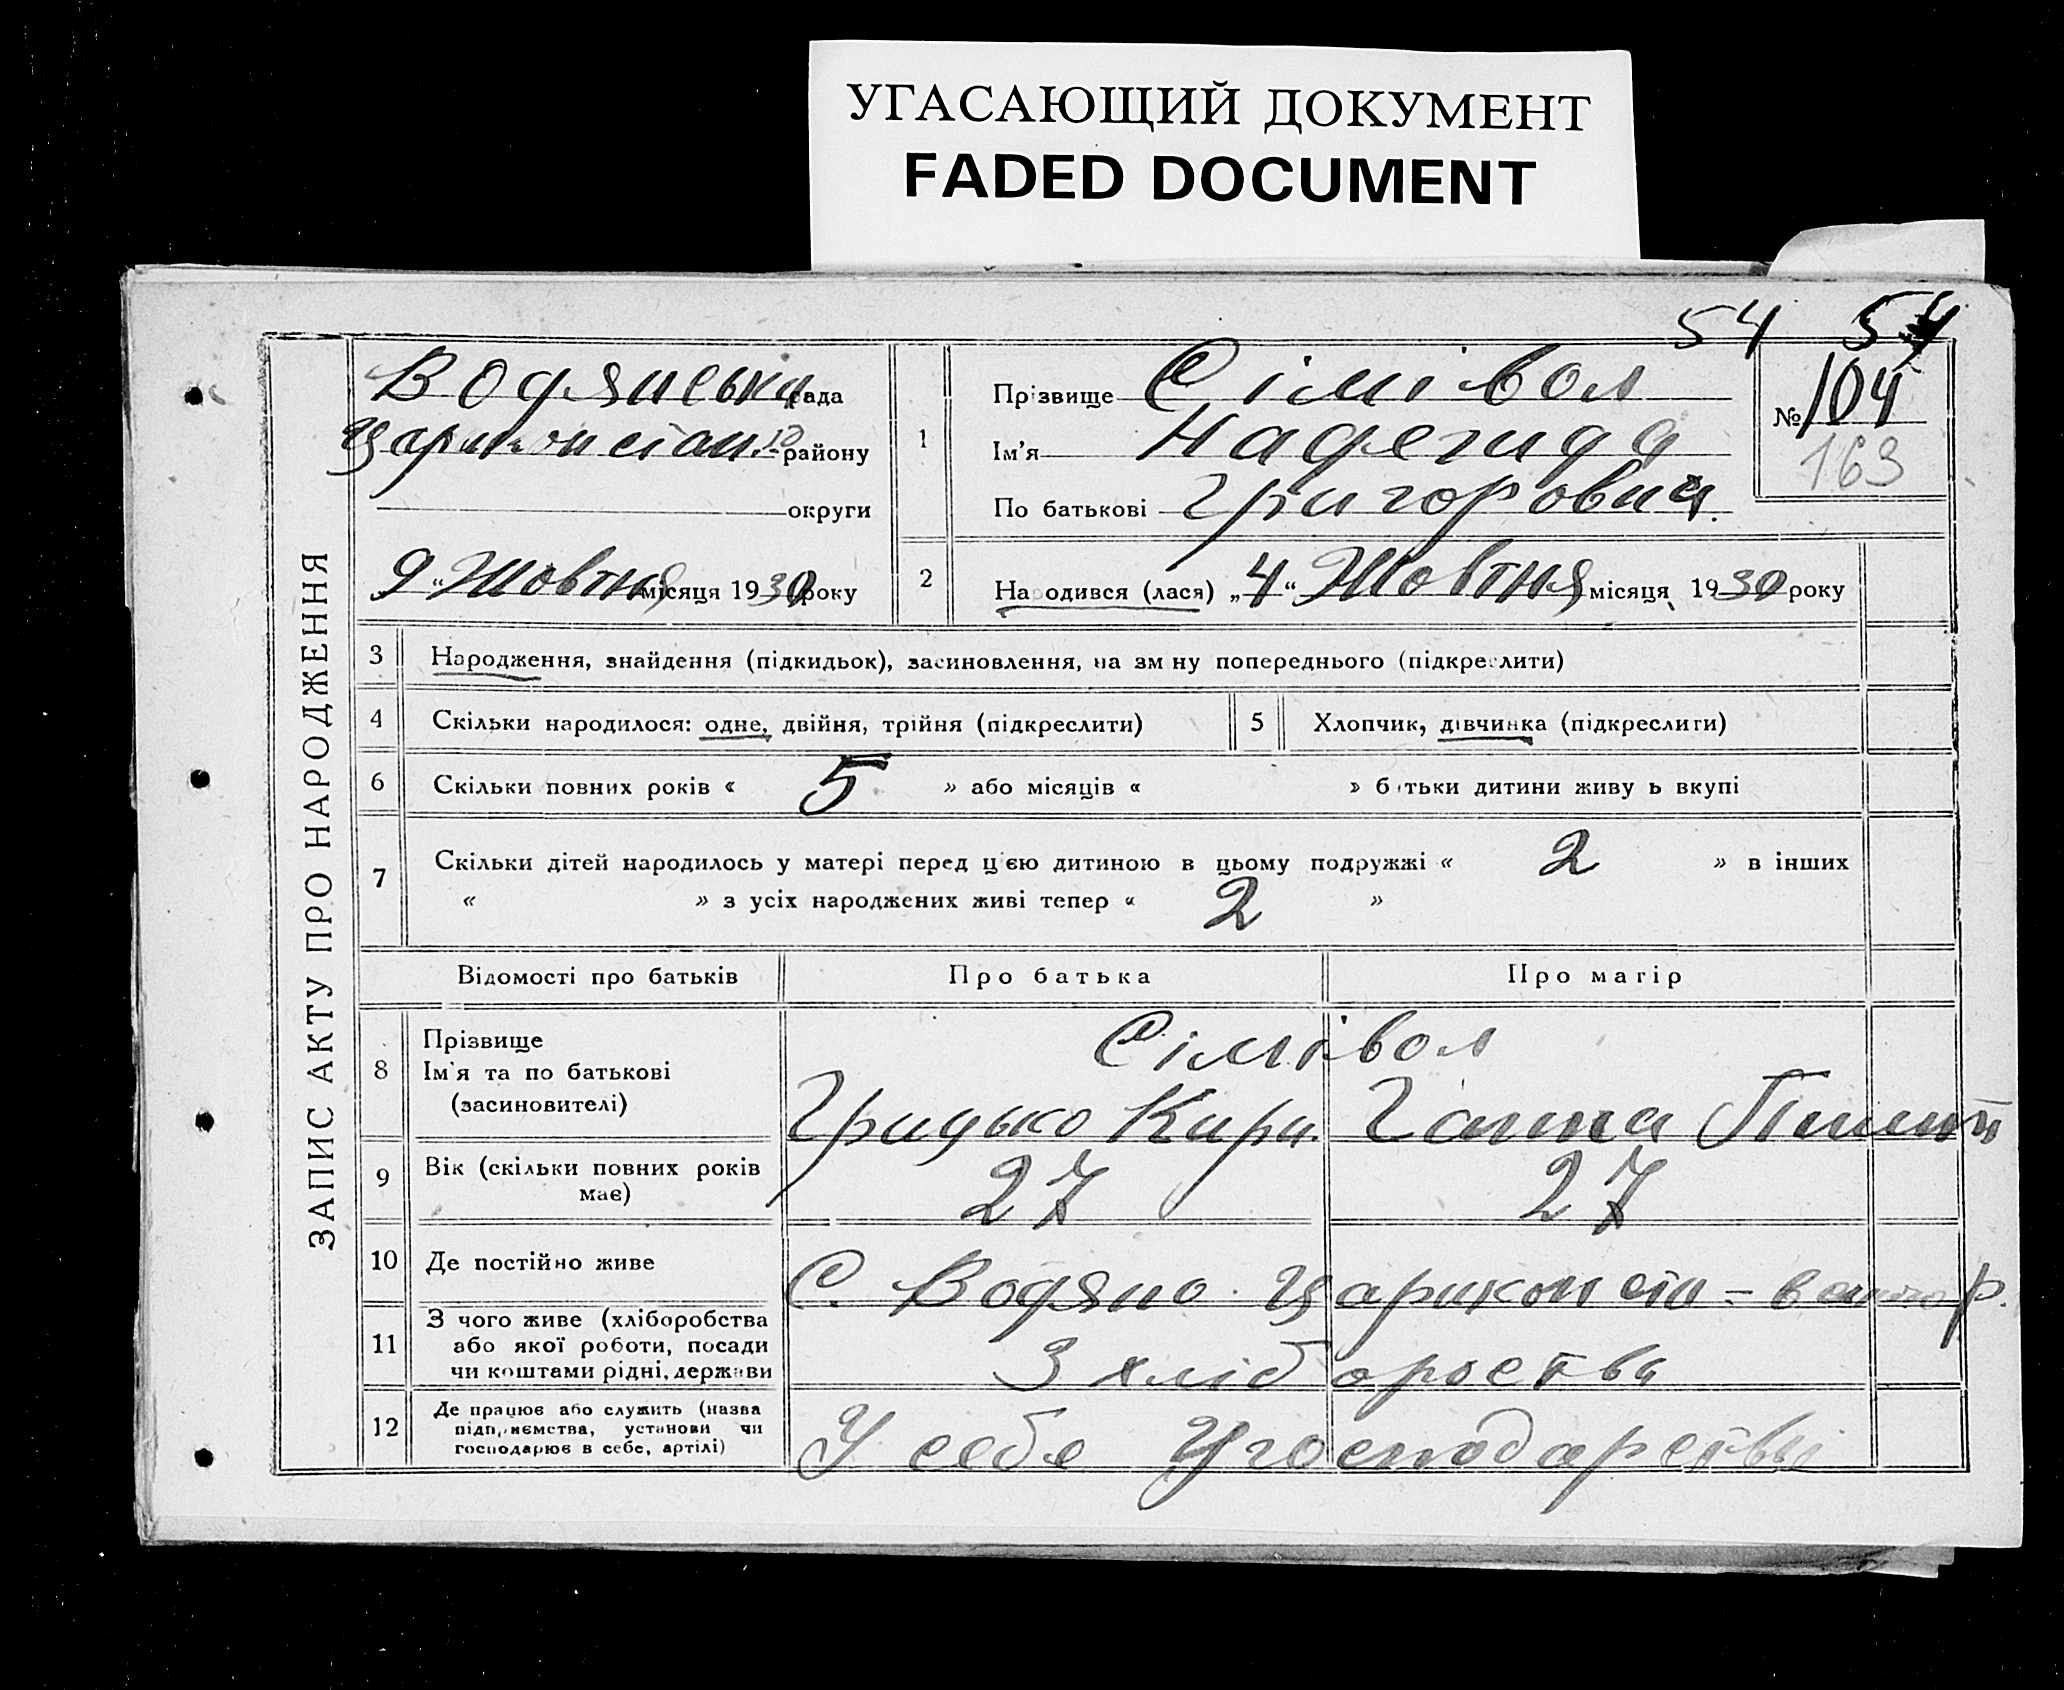 УГАСАЮЩИЙ ДОКУМЕНТ
FADED DOCUMENT
54 54
ЗАПИС АКТУ ПРО НАРОДЖЕННЯ
Водянська рада
району
округи
9 “ Жовтня місяця 1930 року
1
Прізвище Сімівол
Ім'я Надегида
По батькові Григоровна
№ 104
163
2
Народився (лася) „ 4 “ Жовтня місяця 1930 року
3 Народження, знайдення (підкидьок), засиновлення, на зміну попереднього (підкреслити)
4 Скільки народилося: одне, двійня, трійня (підкреслити)
5 Хлопчик, дівчинка (підкреслити)
6 Скільки повних років « 5 » або місяців « » батьки дитини живуть вкупі
7 Скільки дітей народилось у матері перед цією дитиною в цьому подружжі « 2 » в інших
« » з усіх народжених живі тепер « 2 »
Відомості про батьків Про батька Про матір
8 Прізвище
Ім'я та по батькові
(засиновителі)
Сімівол
Грицько Кири. Ганна
9 Вік (скільки повних років
має)
27 27
10 Де постійно живе
С. Водяно
11 З чого живе (хліборобства
або якої роботи, посади
чи коштами рідні, держави
З хлібороства
12 Де працює або служить (назва
підприємства, установи чи
господарює в себе, артілі)
У себе у господарстві